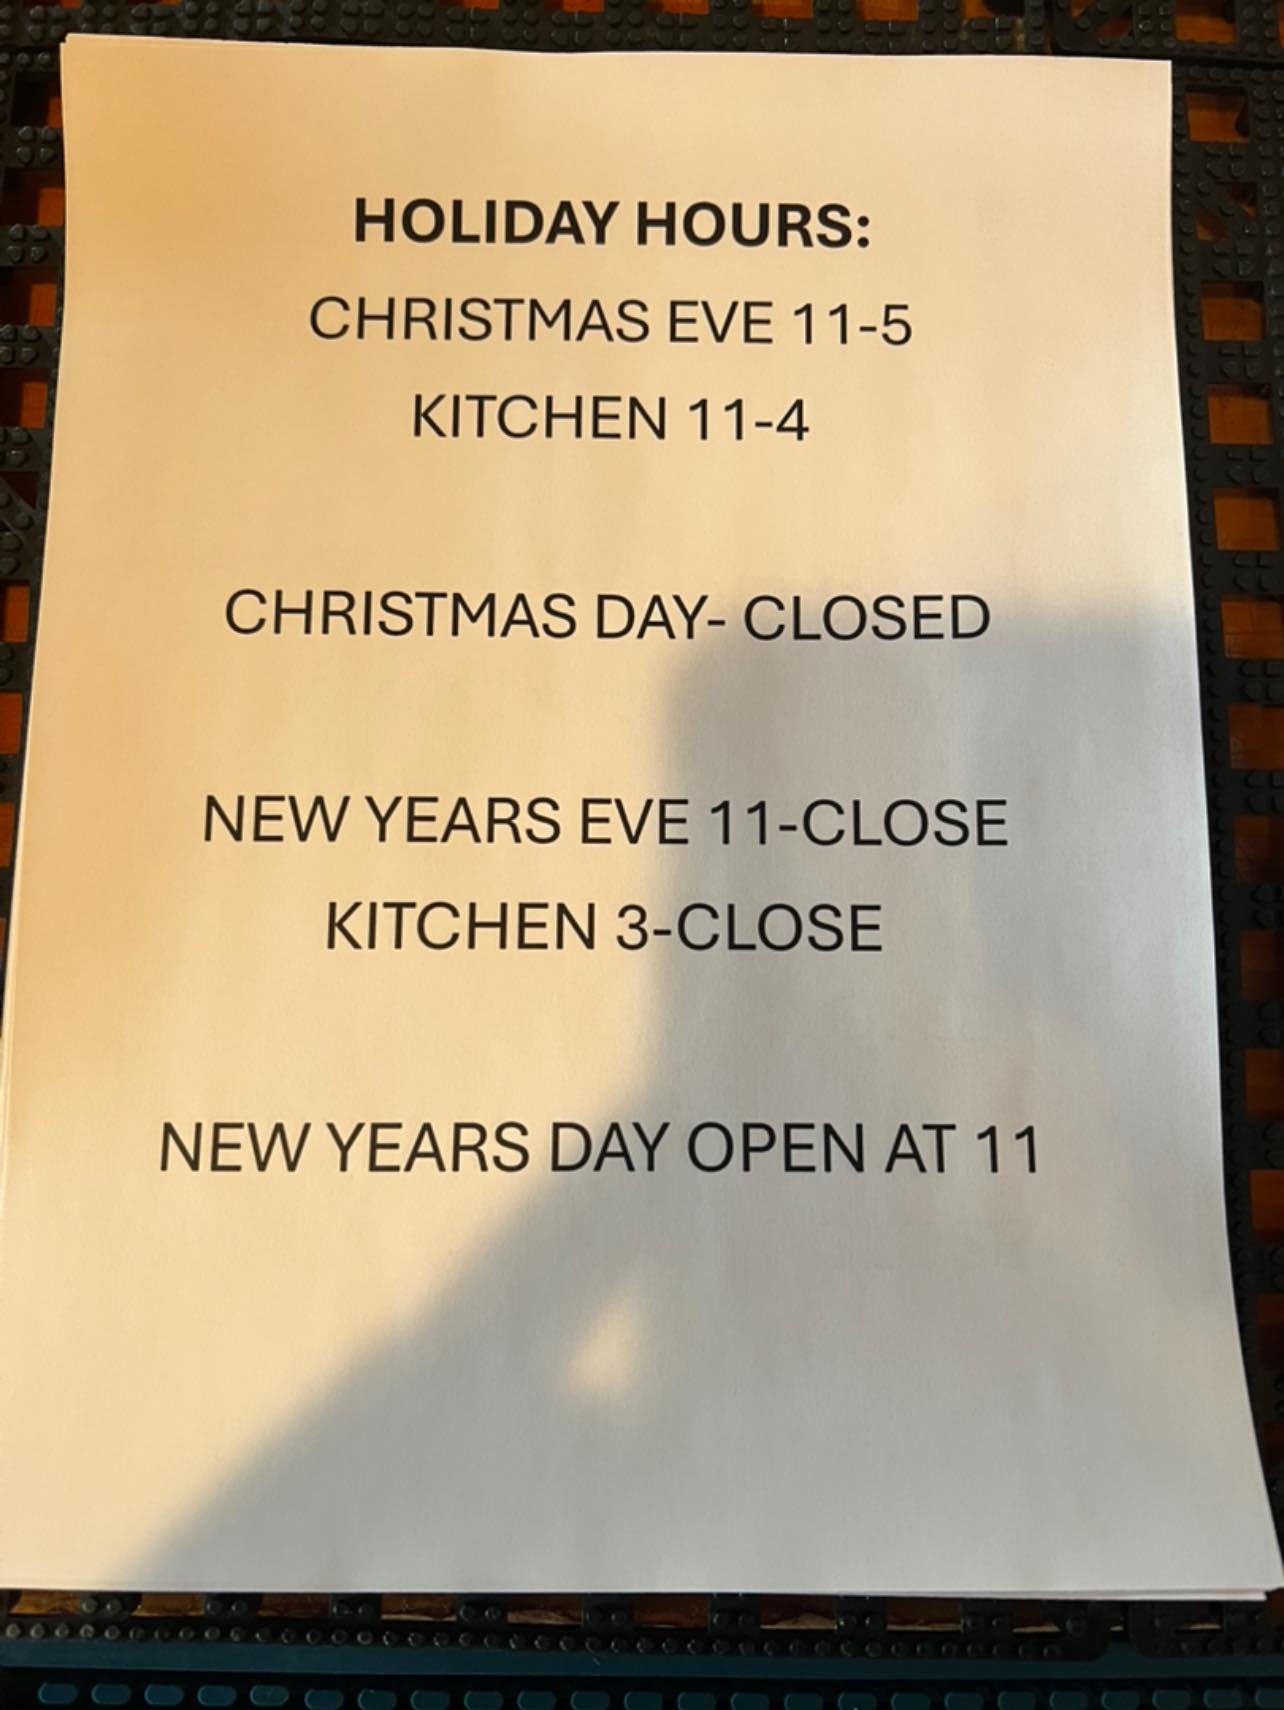 HOLIDAY HOURS:
CHRISTMAS EVE 11-5
KITCHEN 11-4
CHRISTMAS DAY- CLOSED
NEW YEARS EVE 11-CLOSE
KITCHEN 3-CLOSE
NEW YEARS DAY OPEN AT 11